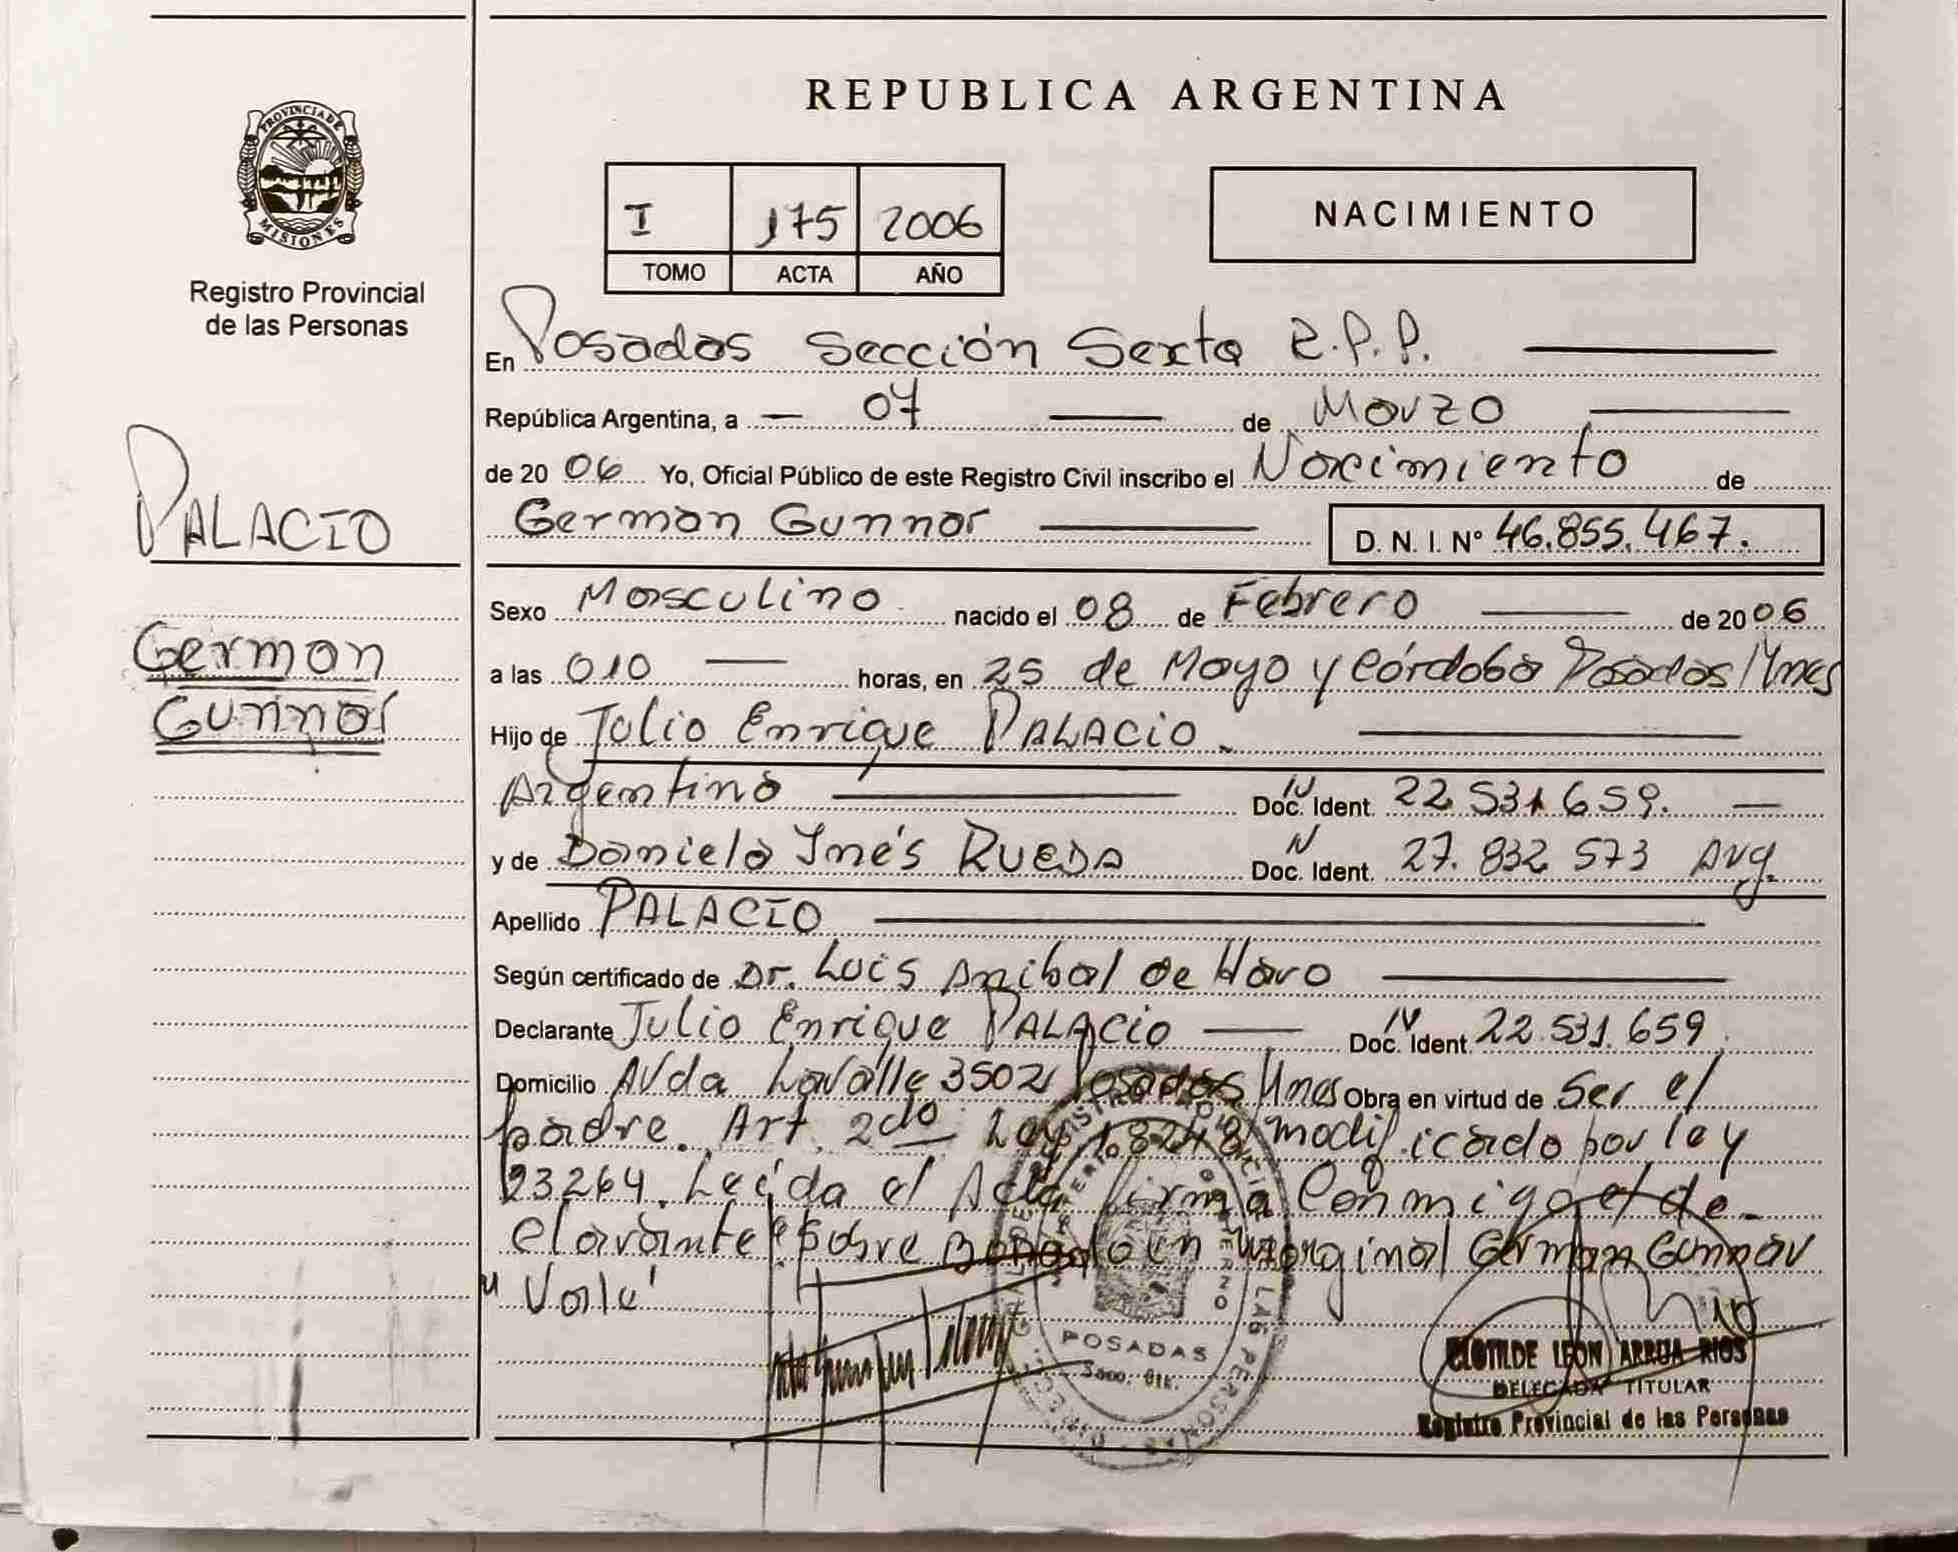 REPUBLICA ARGENTINA
PROVINCIA DE
MISIONES
Registro Provincial
de las Personas
I 175 2006
TOMO ACTA AÑO
NACIMIENTO
En Posadas Sección Sexta R.P.P.
República Argentina, a 07 de Marzo
de 20 06 Yo, Oficial Público de este Registro Civil inscribo el Nacimiento de
German Gunnar D. N. I. N° 46.855.467.
PALACIO
German
Gunnar
Sexo Masculino nacido el 08 de Febrero de 20 06
a las 010 horas, en 25 de Mayo y Córdoba Posadas Mnes
Hijo de Julio Enrique PALACIO.
Argentino Doc. Ident. 22 531 659.
y de Daniela Inés RUEDA Doc. Ident. 27.832 573 Arg.
Apellido PALACIO
Según certificado de Dr. Luis Anibal de Haro
Declarante Julio Enrique PALACIO Doc. Ident. 22.531.659
Domicilio Avda Lavalle 3502 Posadas Mnes Obra en virtud de Ser el
padre. Art. 2do Ley 18248 modificado por ley
23264. Leída el Acta firma Conmigo el de-
clarante sobre en marginal German Gunnar
"Vale"
POSADAS
CLOTILDE LEON ARRUA RIOS
DELEGADA TITULAR
Registro Provincial de las Personas